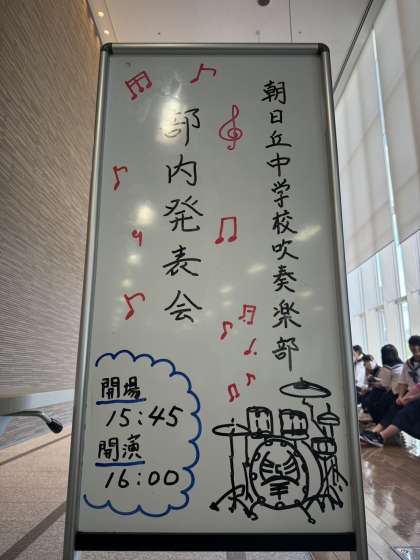 朝日丘中学校吹奏楽部
部内発表会
開場
15:45
開演
16:00